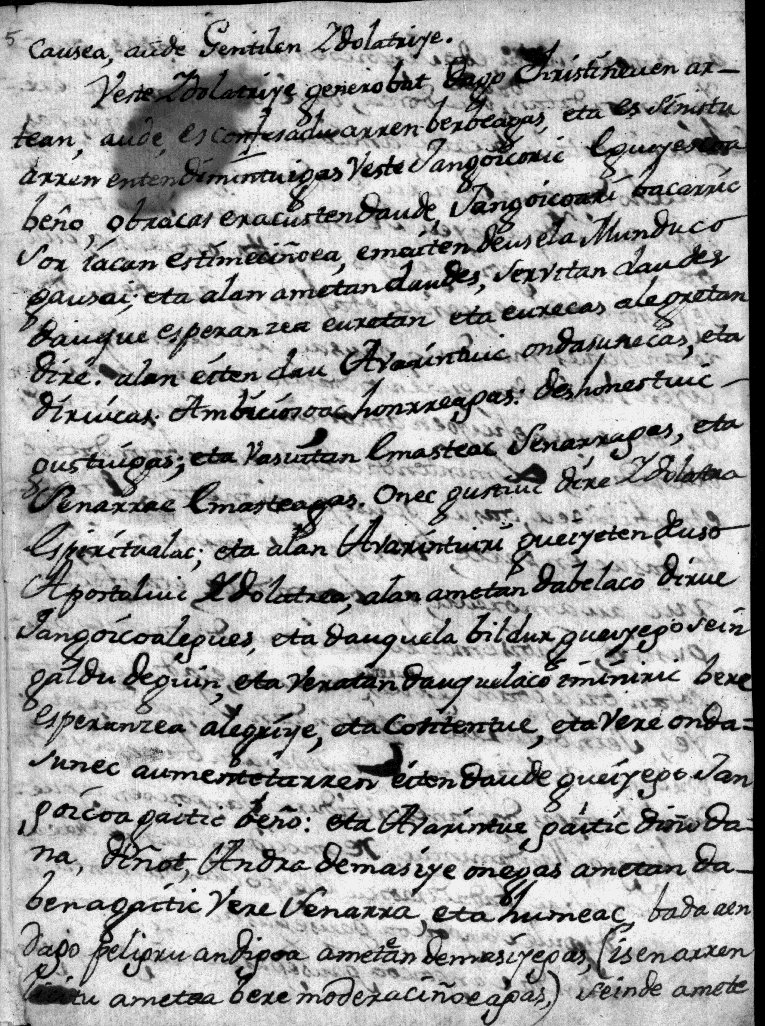 5 causea, aude Gentilen Ydolatriye.
Veste Ydolatriye generobat, Dago Christineuen ar-
tean, aude, es confesadu arren berbeagas, eta es sinistu
arren entendimintuigas Veste Jangoicoric
beño, obracas eracusten daude, Jangoicoari bacarric
sor iacan estimeciñoea, emaiten deusela Munduco
gausai; eta alan ametan daudes, servitan daudes
dauque esperanzea euretan eta eurecas alegretan
dire. alan eiten dau Avarintuic ondasunecas, eta
diruucas. Ambiciosoac honrreagas: deshonestuic
gustuigas; eta Vasuitan Emasteac Senarragas, eta
Senarrac Emasteagas. Onec gustiuc dire Ydolatra
Espiritualac; eta alan Avarintuiri gueiyeten deuso
Apostoluic Ydolatrea, alan ametan dabelaco dirue
Jangoicoalegues, eta dauquela bildur gueiyego sein
galdu deguin, eta veratan dauquelaco iminiric bere
esperanzea alegriye, eta contentue, eta vere onda=
sunec aumentetarren eiten daude gueiyego Jan
goicoa gaitic beño: eta Avarintue gaitic diño da-
na, diñot, Andra demasiye onegas ametan da-
benagaitic Vere Senarra, eta humeac, bada aen
dago peligru andigoa ametan demasiyegas, (isen arren
ametea bere moderaciñoeagas,) seinde amete